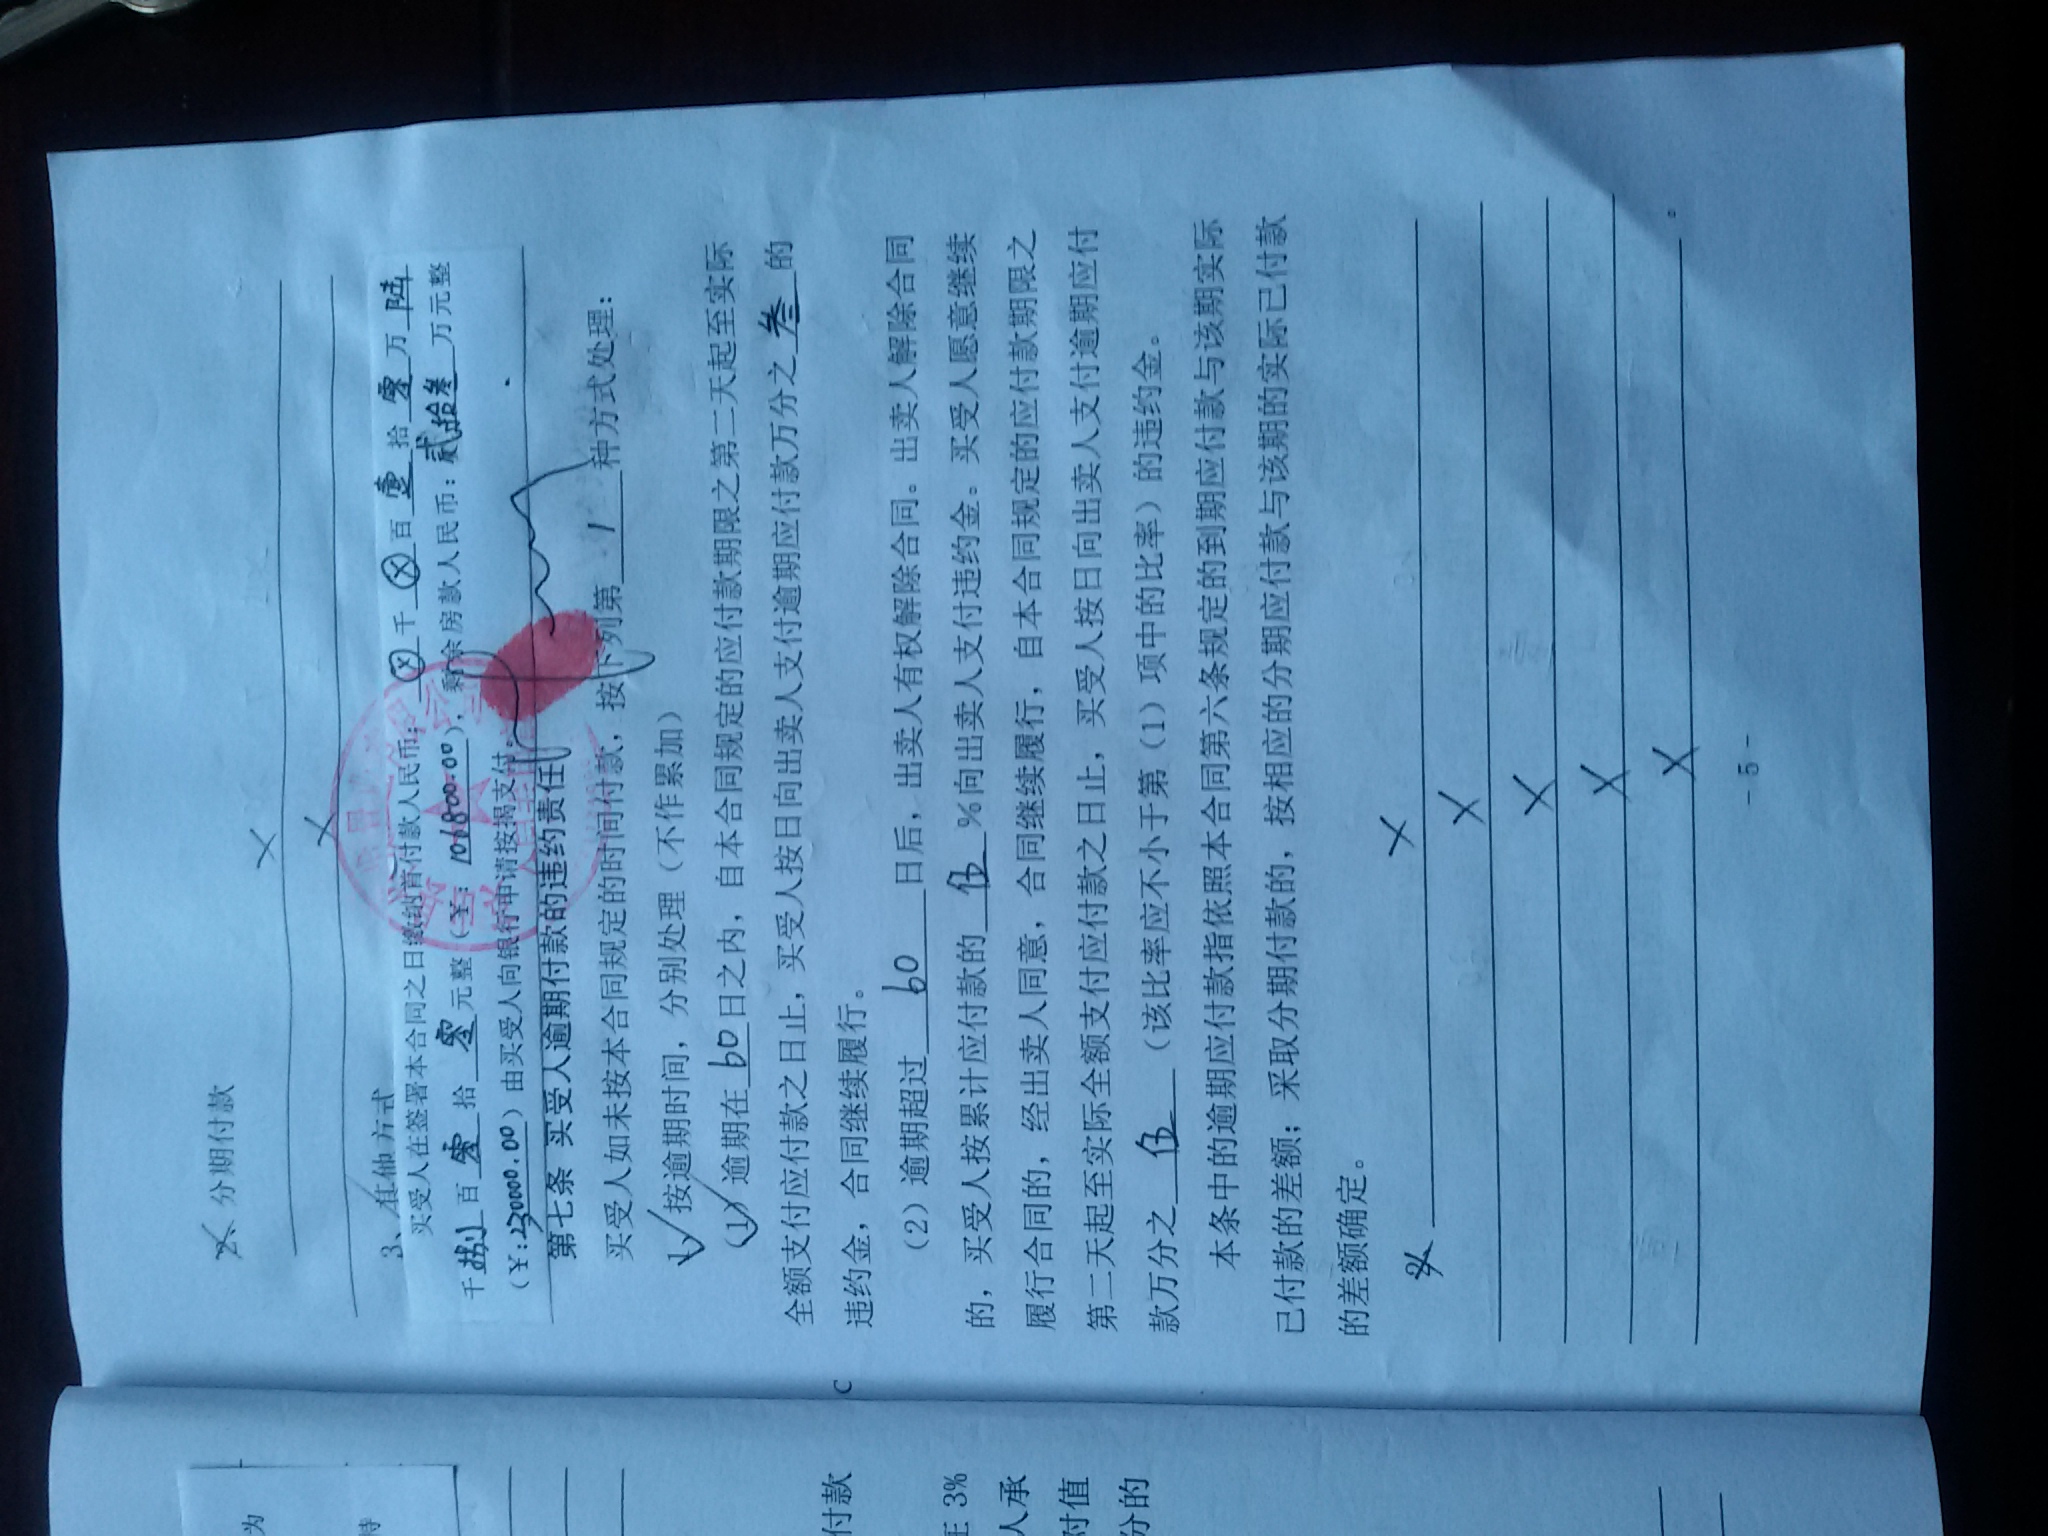 2、分期付款
×
×
3、其他方式
买受人在签署本合同之日缴纳首付款人民币：ⓧ千ⓧ百壹拾零万陆
千捌百零拾零元整（¥：106800.00），剩余房款人民币：贰拾叁万元整
（¥：230000.00）由买受人向银行申请按揭支付。
第七条 买受人逾期付款的违约责任
买受人如未按本合同规定的时间付款，按下列第 1 种方式处理：
1、按逾期时间，分别处理（不作累加）
（1）逾期在60日之内，自本合同规定的应付款期限之第二天起至实际
全额支付应付款之日止，买受人按日向出卖人支付逾期应付款万分之叁的
违约金，合同继续履行。
（2）逾期超过 60 日后，出卖人有权解除合同。出卖人解除合同
的，买受人按累计应付款的 伍 %向出卖人支付违约金。买受人愿意继续
履行合同的，经出卖人同意，合同继续履行，自本合同规定的应付款期限之
第二天起至实际全额支付应付款之日止，买受人按日向出卖人支付逾期应付
款万分之 伍 （该比率应不小于第（1）项中的比率）的违约金。
本条中的逾期应付款指依照本合同第六条规定的到期应付款与该期实际
已付款的差额；采取分期付款的，按相应的分期应付款与该期的实际已付款
的差额确定。
2、 ×
×
×
×
× 。
-5-
为
持
付款
E 3%
人承
对值
分的